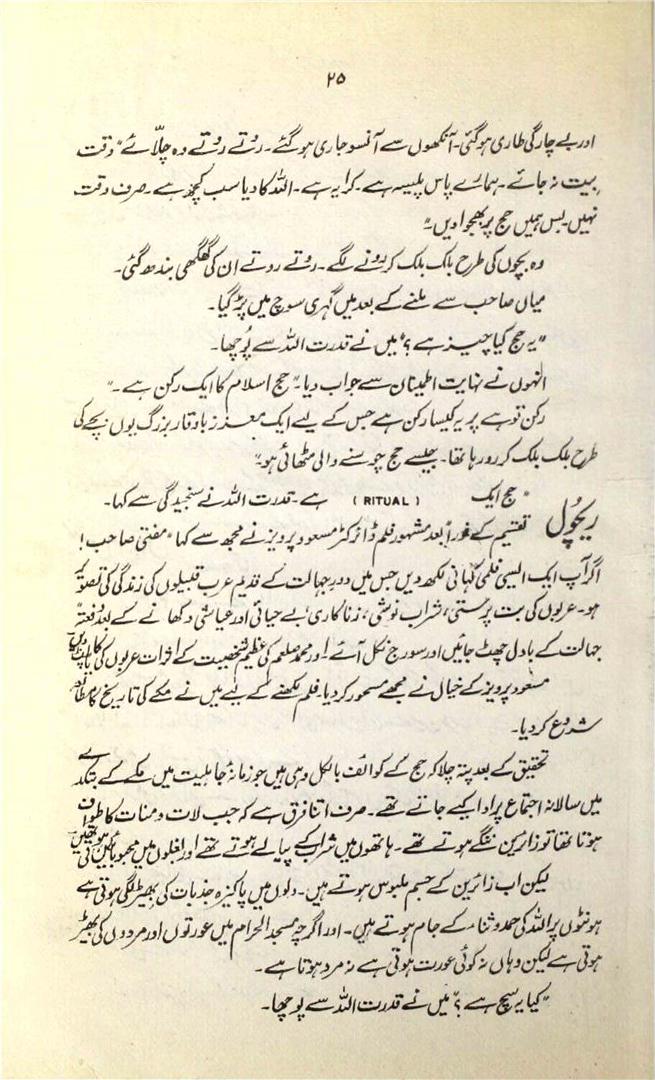 ۲۵
اور بے چارگی طاری ہوگئی۔ آنکھوں سے آنسو جاری ہو گئے۔ روتے روتے وہ چلّائے ”وقت
بیت نہ جائے۔ ہمارے پاس پیسہ ہے۔ کرایہ ہے۔ اللہ کا دیا سب کچھ ہے۔ صرف وقت
نہیں۔ بس ہمیں حج پر بھجوا دیں۔“
وہ بچوں کی طرح بلک بلک کر رونے لگے۔ روتے روتے ان کی گھگھی بندھ گئی۔
میاں صاحب سے ملنے کے بعد میں گہری سوچ میں پڑ گیا۔
”یہ حج کیا چیز ہے؟“ میں نے قدرت اللہ سے پُوچھا۔
انہوں نے نہایت اطمینان سے جواب دیا۔ ”حج اسلام کا ایک رکن ہے۔“
رکن تو ہے پر یہ کیسا رکن ہے جس کے لیے ایک معزز باوقار بزرگ یوں بچے کی
طرح بلک بلک کر رو رہا تھا۔ جیسے حج چوسنے والی مٹھائی ہو۔“
ریچُول ”حج ایک (RITUAL) ہے۔ قدرت اللہ نے سنجیدگی سے کہا۔
تقسیم کے فوراً بعد مشہور فلم ڈائرکٹر مسعود پرویز نے مجھ سے کہا ”مفتی صاحب!
اگر آپ ایک ایسی فلمی کہانی لکھ دیں جس میں دورِ جہالت کے قدیم عرب قبیلوں کی زندگی کی تصویر
ہو۔ عربوں کی بت پرستی، شراب نوشی، زناکاری، بے حیائی اور عیاشی دکھانے کے بعد دفعتہً
جہالت کے بادل چھٹ جائیں اور سورج نکل آئے۔ اور محمد صلعم کی عظیم شخصیت کے اثرات عربوں کی کایا پلٹ دیں
مسعود پرویز کے خیال نے مجھے مسحور کر دیا۔ فلم لکھنے کے لیے میں نے مکے کی تاریخ کا مطالعہ
شروع کر دیا۔
تحقیق کے بعد پتہ چلا کہ حج کے کوائف بالکل وہی ہیں جو زمانۂ جاہلیت میں مکے کے بتکدے
میں سالانہ اجتماع پر ادا کیے جاتے تھے۔ صرف اتنا فرق ہے کہ جب لات و منات کا طواف
ہوتا تھا تو زائرین ننگے ہوتے تھے۔ ہاتھوں میں شراب کے پیالے ہوتے تھے اور بغلوں میں محبوبائیں ہوتی تھیں
لیکن اب زائرین کے جسم ملبوس ہوتے ہیں۔ دلوں میں پاکیزہ جذبات کی بھیڑ لگی ہوتی ہے
ہونٹوں پر اللہ کی حمد و ثناء کے جام ہوتے ہیں۔ اور اگرچہ مسجد الحرام میں عورتوں اور مردوں کی بھیڑ
ہوتی ہے لیکن وہاں نہ کوئی عورت ہوتی ہے نہ مرد ہوتا ہے۔
”کیا یہ سچ ہے؟“ میں نے قدرت اللہ سے پوچھا۔